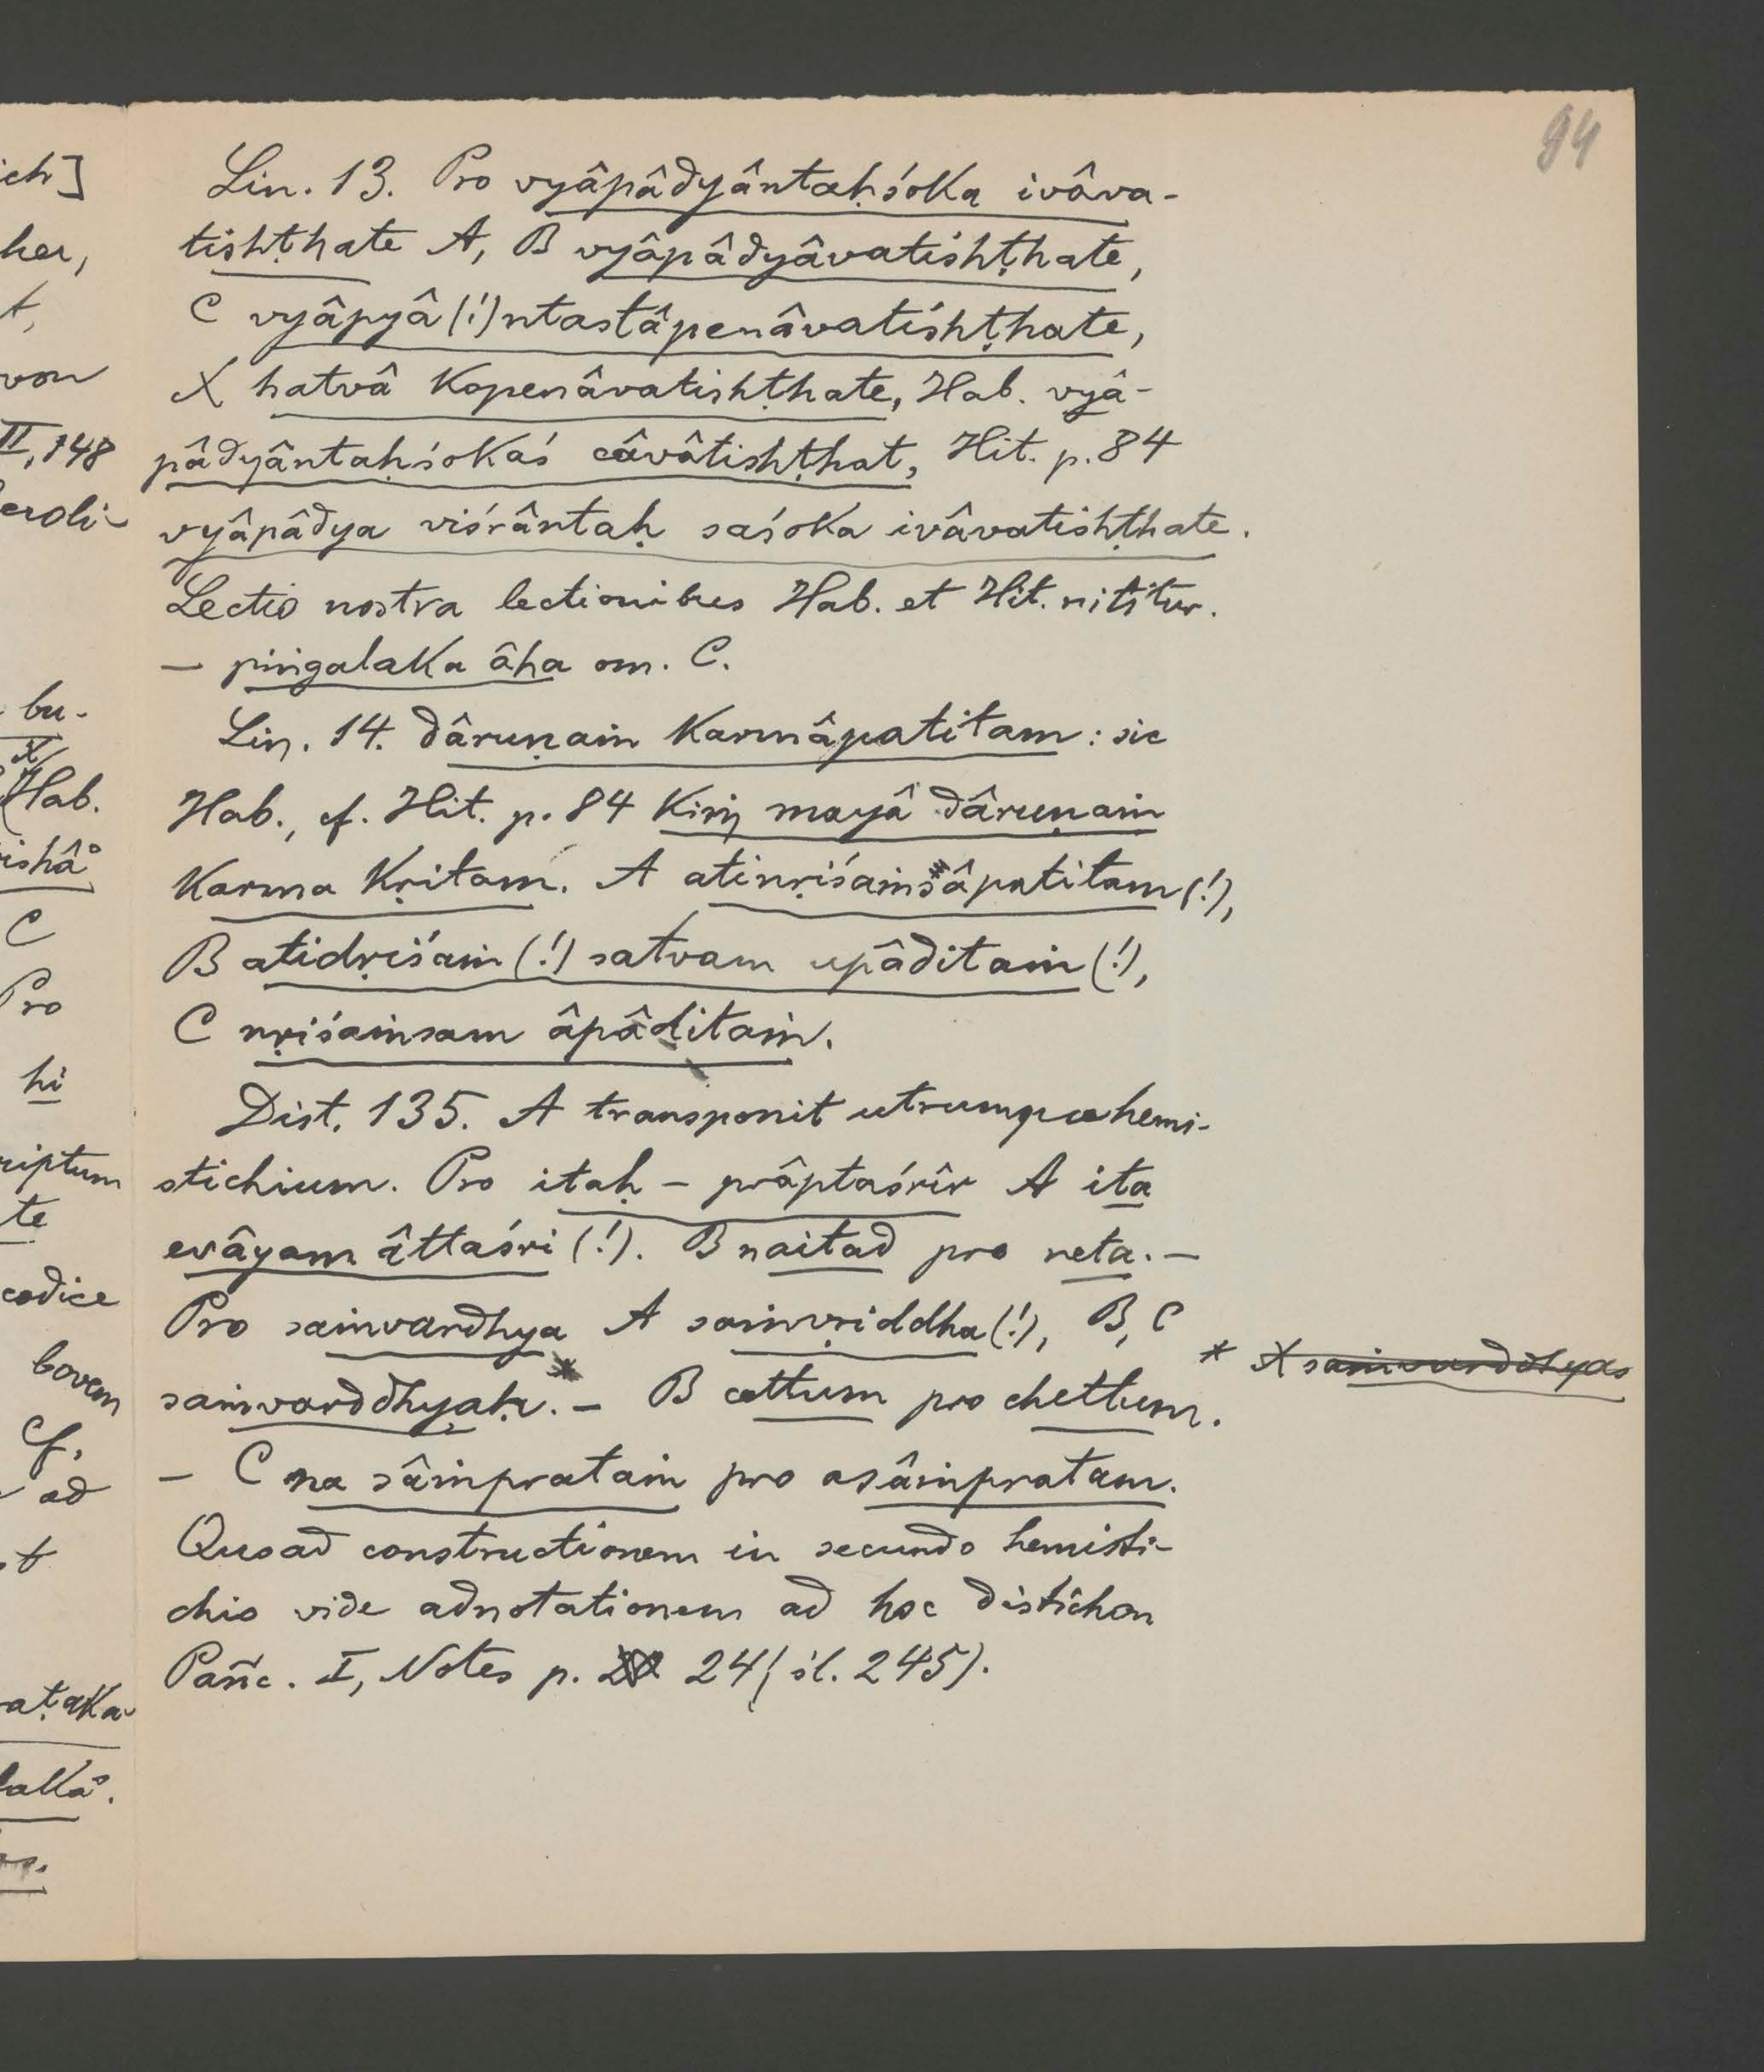 94
Lin. 13. Pro vyâpâdyântaḥśoka ivâva-
tishṭhate A, B vyâpâdyâvatishṭhate,
C vyâpyâ(!)ntastâpenâvatishṭhate,
X hatvâ kopenâvatishṭhate, Hab. vyâ-
pâdyântaḥśokaś câvâtishṭhat, Hit. p. 84
vyâpâdya viśrântaḥ saśoka ivâvatishṭhate.
Lectio nostra lectionibus Hab. et Hit. nititur.
— piṅgalaka âha om. C.
Lin. 14. dâruṇaṁ karmâpatitam: sic
Hab., cf. Hit. p. 84 kiṁ mayâ dâruṇaṁ
karma kṛitam. A atinṛiśaṁsâpatitam (!),
B atidṛiśaṁ (!) satvam upâditaṁ (!),
C nṛiśaṁsam âpâditaṁ.
Dist. 135. A transponit utrumque hemi-
stichium. Pro itaḥ — prâptaśrîr A ita
evâyam âttaśri (!). B naitad pro neta. —
Pro saṁvardhya A saṁvṛiddha (!), B, C
saṁvarddhyaḥ.* — B cettum pro chettum.
* X saṁvarddhyas
— C na sâṁprataṁ pro asâṁpratam.
Quoad constructionem in secundo hemisti-
chio vide adnotationem ad hoc distichon
Pañc. I, Notes p. 24 (śl. 245).
ich]
her,
t,
von
II, 148
bu-
X
Hab.
ishâ°
C
Pro
hi
riptum
te
codice
bovem
Cf.
ad
t
aṭaka-